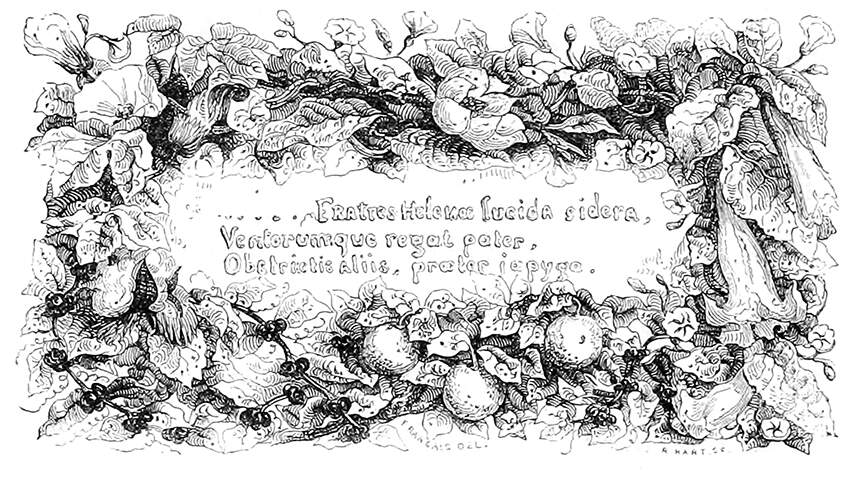 ..... Fratres Helenæ lucida sidera,
Ventorumque regat pater,
Obstrictis aliis, præter iapyga.
FRANÇAIS DEL.
HART SC.